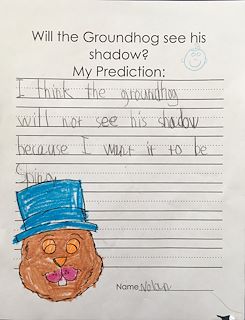 Will the Groundhog see his
shadow?
My Prediction:
I think the groundhog
will not see his shadow
because I want it to be
Spring
Name Nolan